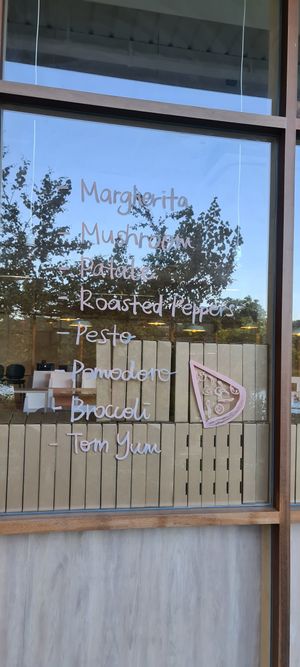 - Margherita
- Mushroom
- Patate
- Roasted Peppers
- Pesto
- Pomodoro
- Broccoli
- Tom Yum